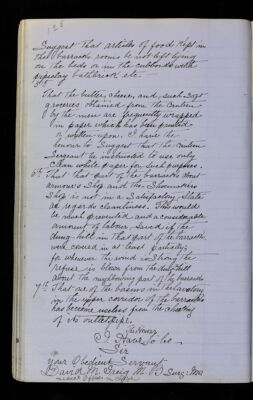 Suggest that articles of food kept in
the barrack rooms be not left lying
on the beds or in the cupboards with
bathbrick etc.
5th
That the butter, cheese, and such
groceries obtained from the Canteen
by the men are frequently wrapped
in paper which has been printed
or written upon. I have the
honour to suggest that the Canteen
Sergeant be instructed to use only
clean white paper for such purposes.
6th That that part of the barracks about
Armourer's Shop and the Shoemakers
Shop is not in a satisfactory state
as regards cleanliness. This would
be much prevented and a considerable
amount of labour saved if the
dung-hill in that part of the barracks
were covered in at least partially
for whenever the wind is strong the
refuse is blown from the dunghill
about the neighbouring part of the barracks
7th That one of the basins in the lavatory
in the upper corridor of the barracks
has become useless from the
of its outlet pipe.
the Honor
I Have to be
Sir
Your Obedient Servant
David M. Greig M.B. Surg:
Medical Officer in